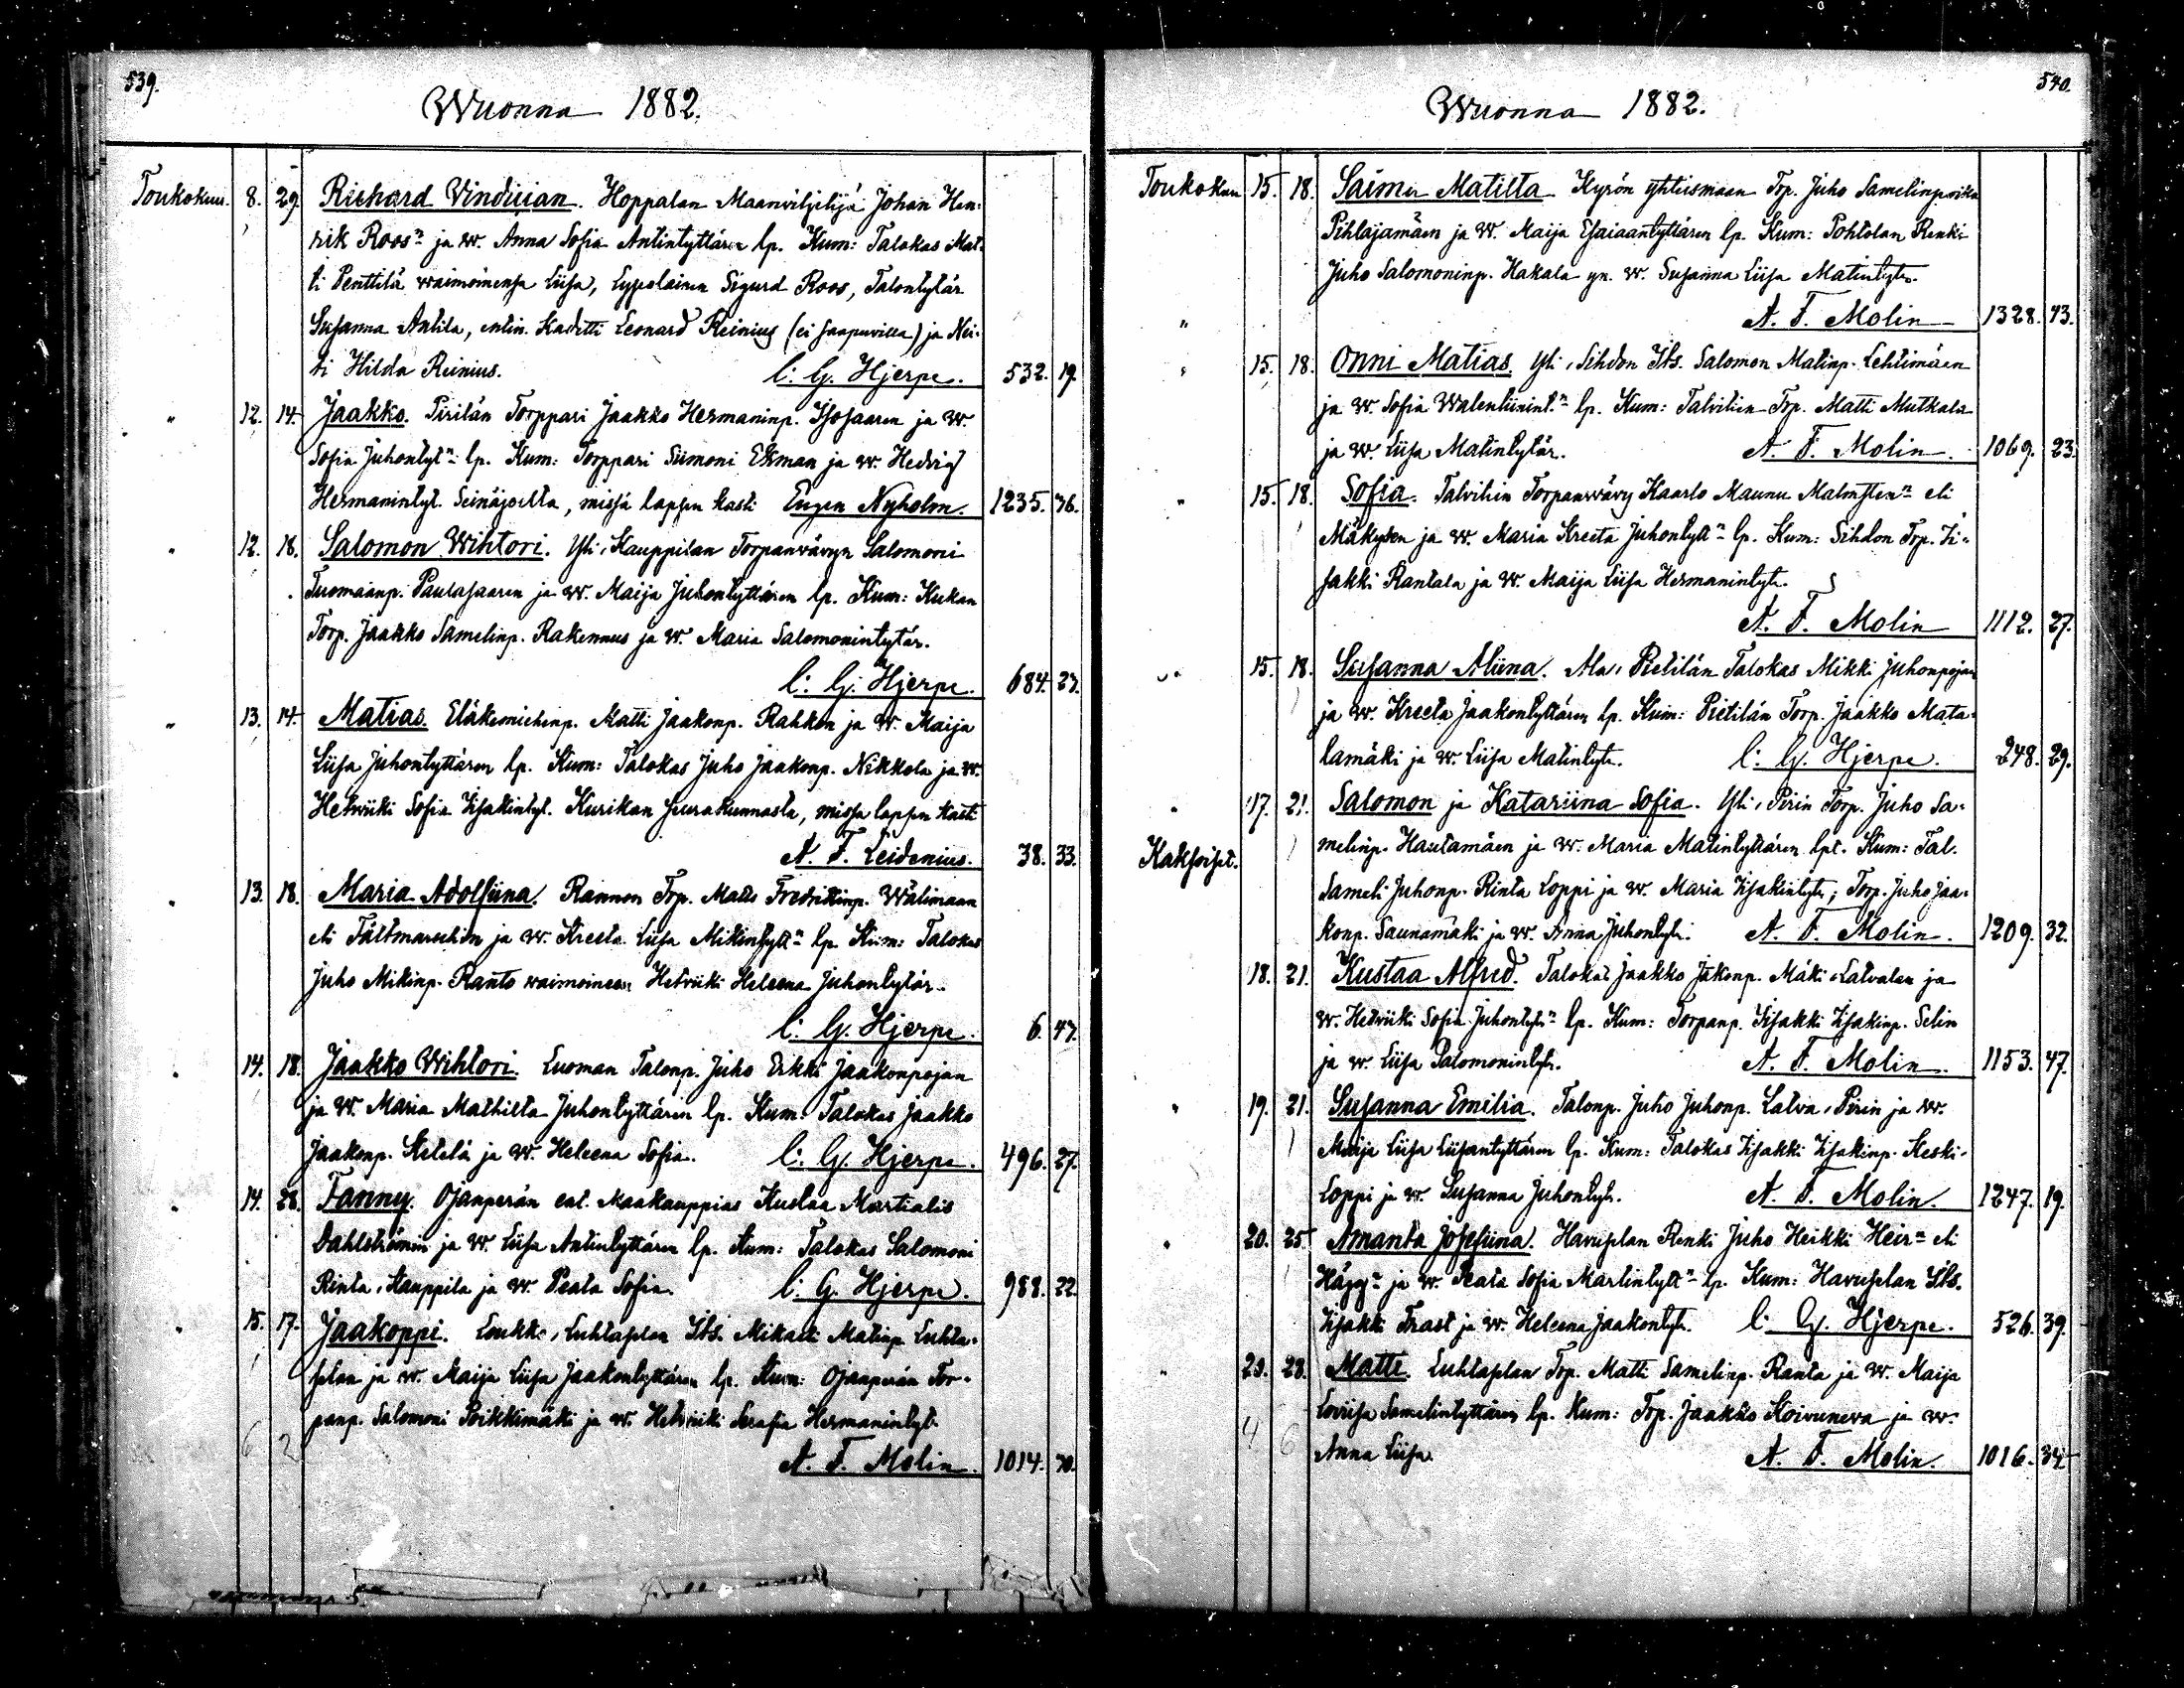 539.
Wuonna 1882.
Toukokuu. 8. 29. Richard Vinduian. Hoppalan Maanviljelijä Johan Hen-
rik Roosn ja w. Anna Sofia Antintyttären lp. Kum: Talokas Mat-
ti Penttilä waimoinensa Liisa, Sigurd Roos, Talontytär
Susanna Antila, entin. Kadetti Leonard Reinius (ei saapuvilla) ja Nei-
ti Hilda Reinius. C. G. Hjerpe. 532. 19.
" 12. 14. Jaakko. Pirilän Torppari Jaakko Hermaninp. Isosaaren ja w.
Sofia Juhontytn lp. Kum: Torppari Siimoni Ekman ja w. Hedvig
Hermanintyt. Seinäjoelta, missä lapsen kasti Eugen Nyholm. 1235. 76.
" 12. 18. Salomon Wihtori. Yli-Kauppilan Torpanvävyn Salomoni
Tuomaanp. Pautasaaren ja w. Maija Juhontyttären lp. Kum: Kukan
Torp. Jaakko Samelinp. Rakennus ja w. Maria Salomonintytär.
C. G. Hjerpe. 684. 27.
" 13. 14. Matias. Eläkemiehenp. Matti Jaakonp. Rahkon ja w. Maija
Liisa Juhontyttären lp. Kum: Talokas Juho Jaakonp. Nikkola ja w.
Hetviiki Sofia Iisakintyt. Kurikan seurakunnasta, missä lapsen kasti
A. F. Leidenius. 38. 33.
" 13. 18. Maria Adolfiina. Rannon Trp. Matts Fredrikinp. Wälimaan
eli Fältmarschin ja w. Kreeta Liisa Mikintyttn lp. Kum: Talokas
Juho Mikinp. Ranto waimoineen Hetviiki Heleena Juhontytär.
C. G. Hjerpe. 6. 47.
" 14. 18. Jaakko Wihtori. Luoman Talonp. Juho Erkki Jaakonpojan
ja w. Maria Mathilta Juhontyttären lp. Kum: Talokas Jaakko
Jaakonp. Ketelä ja w. Heleena Sofia. C. G. Hjerpe. 496. 27.
" 14. 28. Fanny. Ojanperän ent. Maakauppias Kustaa Martialis
Dahlströmin ja w. Liisa Antintyttären lp. Kum: Talokas Salomoni
Rinta-Kauppila ja w. Peata Sofia. C. G. Hjerpe. 988. 22.
" 15. 17. Jaakoppi. Loukko-Luhtaslan Its. Mikael Matinp. Luhta-
slan ja w. Maija Liisa Jaakontyttären lp. Kum: Ojanperän Tor-
panp. Salomoni Poikkimäki ja w. Hetviiki Serafia Hermanintyt.
6 2 A. F. Molin. 1014. 70.
540.
Wuonna 1882.
Toukokuu 15. 18. Saima Matilta Kyrön yhteismaan Trp. Juho Samelinpoika
Pihlajamäen ja w. Maija Esaiaantyttären lp. Kum: Pohtolan Renki
Juho Salomoninp. Hakala yn. w. Susanna Liisa Matintyt.
" A. F. Molin 1328. 73.
" 15. 18. Onni Matias. Yli-Sihdon Its. Salomon Matinp. Lehtimäen
ja w. Sofia Walentiinint.n lp. Kum: Talvitien Trp. Matti Mutkala
ja w. Liisa Matintytär. A. F. Molin. 1069. 23.
" 15. 18. Sofia. Talvitien Torpanvävy Kaarlo Maunu Malmstenn eli
Mäkysen ja w. Maria Kreeta Juhontytn lp. Kum: Sihdon Trp. Ii-
sakki Rantala ja w. Maija Liisa Hermanintyt.
A. F. Molin 1112. 27.
" 15. 18. Susanna Miina. Ala-Pietilän Talokas Mikki Juhonpojan
ja w. Kreeta Jaakontyttären lp. Kum: Pietilän Torp. Jaakko Mata-
lamäki ja w. Liisa Matintyt. C. G. Hjerpe. 248. 29.
" 17. 21. Salomon ja Katariina Sofia. Yli-Pirin Torp. Juho Sa-
Kaksoiset. melinp. Hautamäen ja w. Maria Matintyttären lpt. Kum: Tal.
Sameli Juhonp. Rinta Loppi ja w. Maria Iisakintyt; Torp. Juho Jaa-
konp. Saunamäki ja w. Anna Juhontyt. A. F. Molin. 1209. 32.
18. 21. Kustaa Alfred. Talokas Jaakko Jakonp. Mäki-Latvalan ja
w. Hetviiki Sofia Juhontytn lp. Kum: Torpanp. Iisakki Iisakinp. Selin
ja w. Liisa Salomonintyt. A. F. Molin. 1153. 47.
" 19. 21. Susanna Emilia. Talonp. Juho Juhonp. Latva-Pirin ja w.
Maija Liisa Liisantyttären lp. Kum: Talokas Iisakki Iisakinp. Keski-
Loppi ja w. Susanna Juhontyt. A. F. Molin. 1247. 19.
" 20. 25. Amanta Josefiina. Havuselan Renki Juho Heikki Heirn eli
Häggn ja w. Peata Sofia Martintytn lp. Kum: Havuselan Its.
Iisakki Trast ja w. Heleena Jaakontyt. C. G. Hjerpe. 526. 39.
" 20. 28. Matti. Luhtaslan Trp. Matti Samelinp. Ranta ja w. Maija
Loviisa Samelintyttären lp. Kum: Trp. Jaakko Koivuneva ja w.
4 6 Anna Liisa A. F. Molin. 1016. 34.